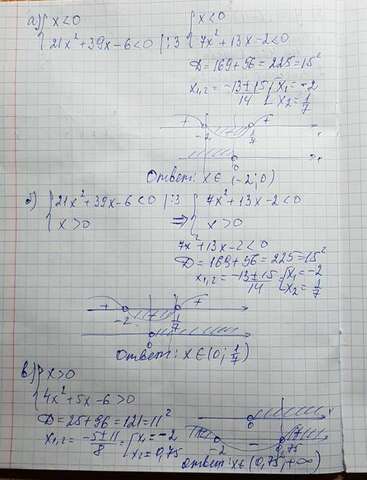 а) { x<0 { x<0
{ 21x²+39x-6<0 |:3 { 7x²+13x-2<0
D=169+56=225=15²
x₁,₂= -13±15/14 [ x₁=-2
[ x₂=1/7
+ -2 - 1/7 +
0
Ответ: x∈(-2;0)
б) { 21x²+39x-6<0 |:3 { 7x²+13x-2<0
{ x>0 ⇒ { x>0
7x²+13x-2<0
D=169+56=225=15²
x₁,₂= -13±15/14 [ x₁=-2
[ x₂=1/7
+ -2 - 1/7 +
0
Ответ: x∈(0; 1/7)
в) { x>0
{ 4x²+5x-6>0
D=25+96=121=11²
x₁,₂= -5±11/8 = [ x₁=-2
[ x₂=0,75
0
-2 - 0,75
Ответ: x∈(0,75;+∞)